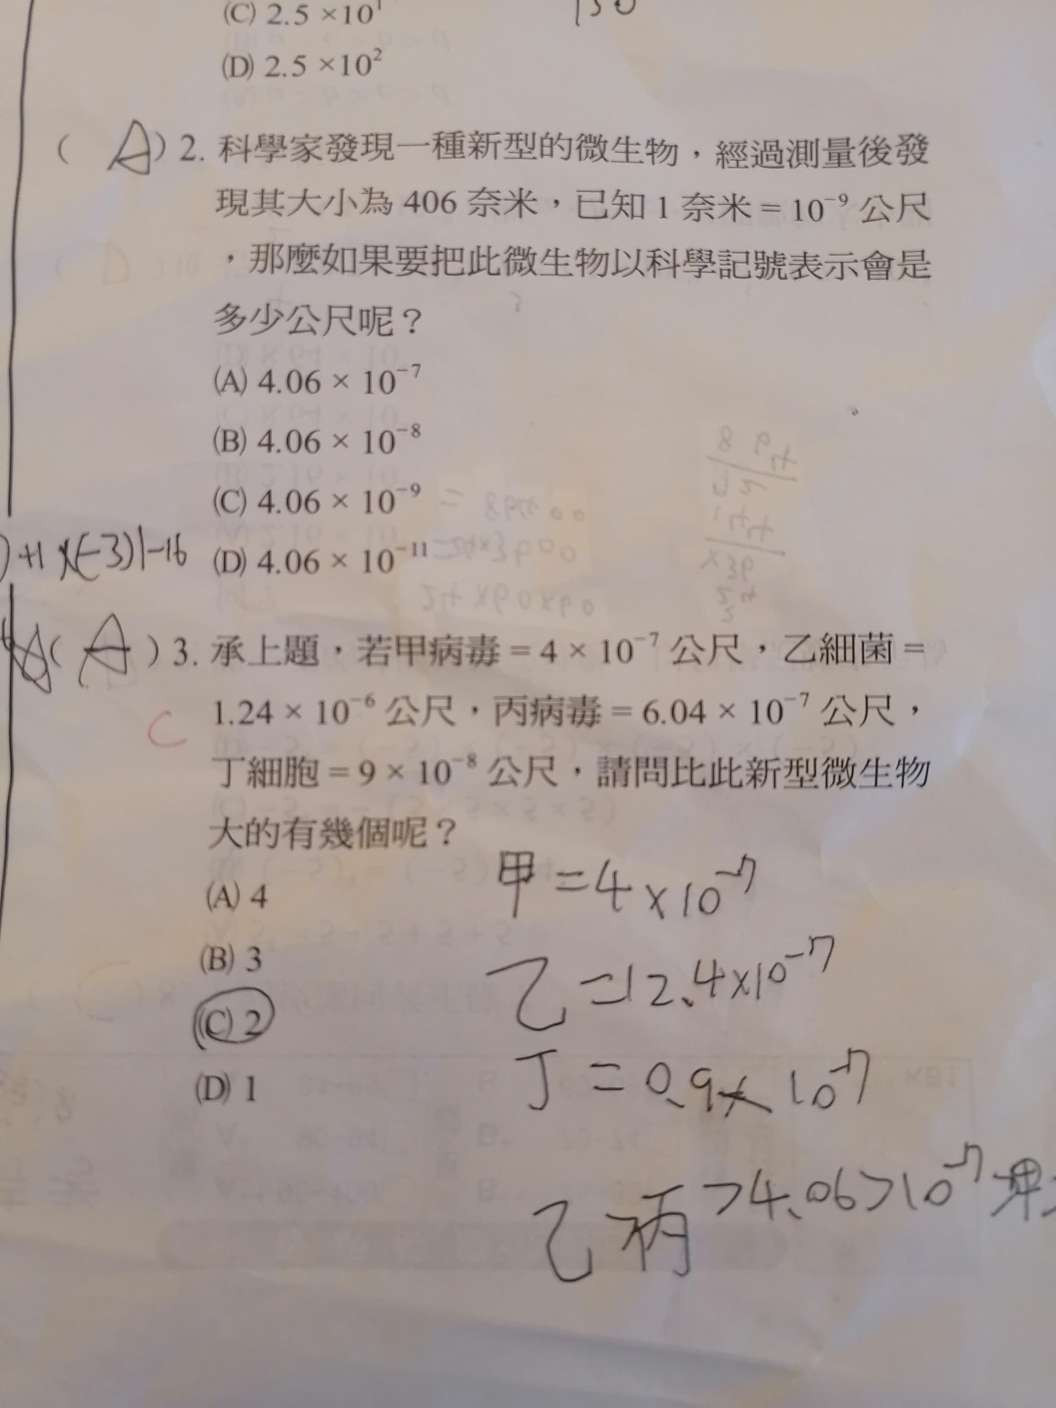 (C) 2.5 ×10¹
150
(D) 2.5 ×10²
( A ) 2. 科學家發現一種新型的微生物，經過測量後發
現其大小為 406 奈米，已知 1 奈米 = 10⁻⁹ 公尺
，那麼如果要把此微生物以科學記號表示會是
多少公尺呢？
(A) 4.06 × 10⁻⁷
(B) 4.06 × 10⁻⁸
(C) 4.06 × 10⁻⁹
)+1×(-3)|-16
(D) 4.06 × 10⁻¹¹
( A ) 3. 承上題，若甲病毒 = 4 × 10⁻⁷ 公尺，乙細菌 =
C
1.24 × 10⁻⁶ 公尺，丙病毒 = 6.04 × 10⁻⁷ 公尺，
丁細胞 = 9 × 10⁻⁸ 公尺，請問比此新型微生物
大的有幾個呢？
(A) 4
甲=4×10⁻⁷
(B) 3
乙=12.4×10⁻⁷
(C) 2
(D) 1
丁=0.9×10⁻⁷
乙丙>4.06>10⁻⁷甲